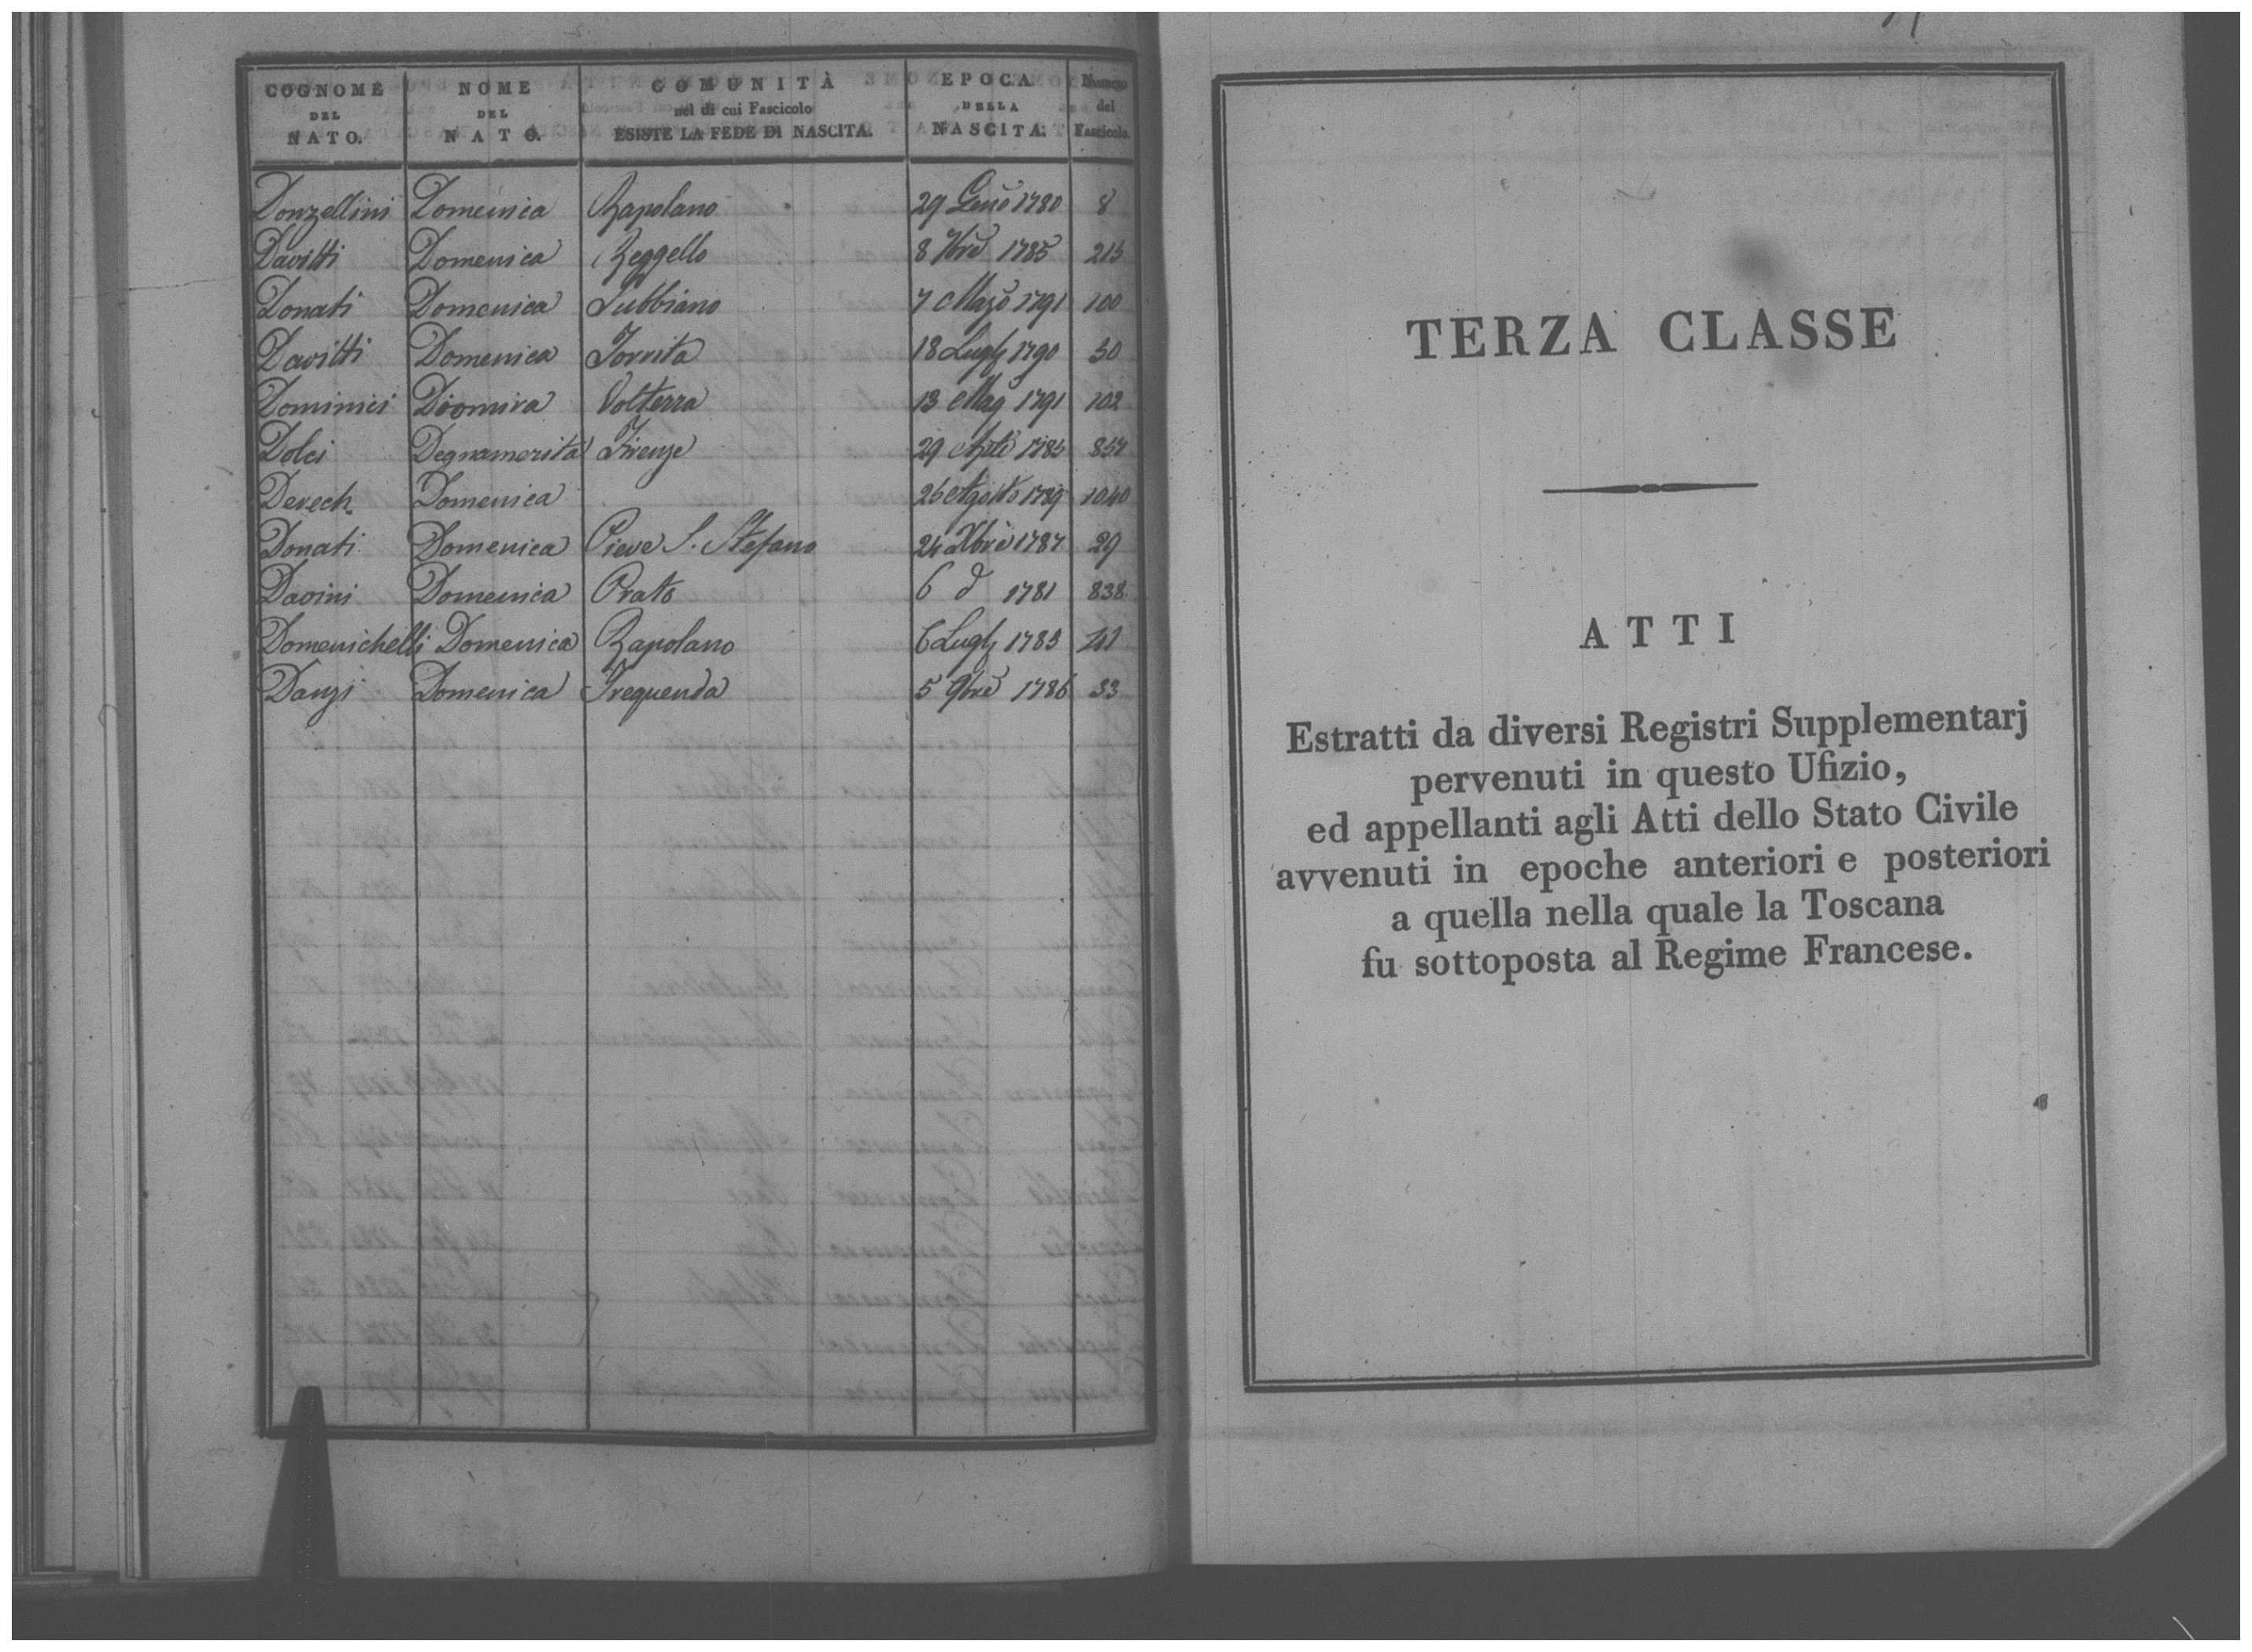 COGNOME DEL NATO. NOME DEL NATO. COMUNITÀ nel di cui Fascicolo ESISTE LA FEDE DI NASCITA. EPOCA DELLA NASCITA. Numero del Fascicolo.
Donzellini Domenica Rapolano 29 Genº 1780 8
Davitti Domenica Reggello 8 7bre 1785 215
Donati Domenica Subbiano 7 Mazº 1791 100
Davitti Domenica Torrita 18 Lugl 1790 50
Dominici Diomira Volterra 13 Mag 1791 102
Dolci Degnamerita Firenze 29 Aple 1785 857
Derech Domenica 26 Agosto 1789 1040
Donati Domenica Pieve S. Stefano 24 Xbre 1787 29
Davini Domenica Prato 6 d 1781 838
Domenichelli Domenica Rapolano 6 Lugl 1783
Danzi Domenica Trequenda 5 9bre 1786 33
TERZA CLASSE
ATTI
Estratti da diversi Registri Supplementarj
pervenuti in questo Ufizio,
ed appellanti agli Atti dello Stato Civile
avvenuti in epoche anteriori e posteriori
a quella nella quale la Toscana
fu sottoposta al Regime Francese.